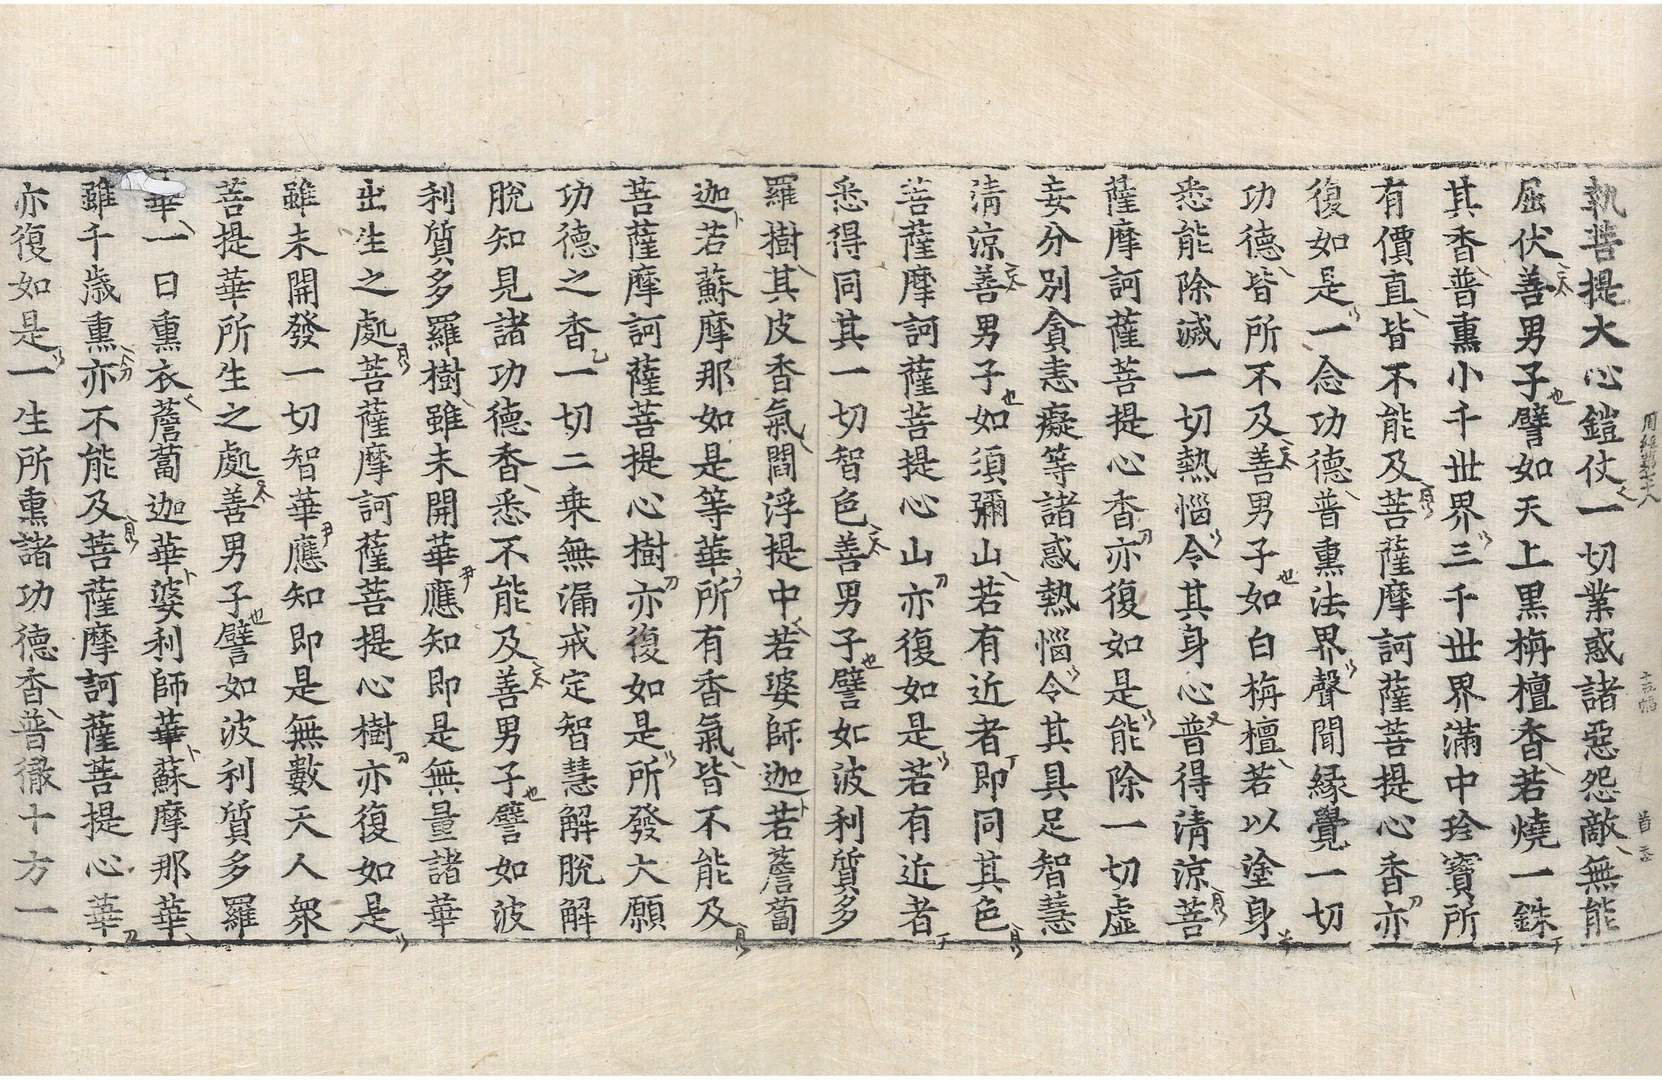 執菩提大心鎧仗一切業惑諸惡怨敵無能
屈伏善男子譬如天上黑栴檀香若燒一銖
其香普熏小千世界三千世界滿中珍寶所
有價直皆不能及菩薩摩訶薩菩提心香亦
復如是一念功德普熏法界聲聞緣覺一切
功德皆所不及善男子如白栴檀若以塗身
悉能除滅一切熱惱令其身心普得清涼菩
薩摩訶薩菩提心香亦復如是能除一切虛
妄分別貪恚癡等諸惑熱惱令其具足智慧
清涼善男子如須彌山若有近者即同其色
菩薩摩訶薩菩提心山亦復如是若有近者
悉得同其一切智色善男子譬如波利質多
羅樹其皮香氣閻浮提中若婆師迦若薝蔔
迦若蘇摩那如是等華所有香氣皆不能及
菩薩摩訶薩菩提心樹亦復如是所發大願
功德之香一切二乗無漏戒定智慧解脫解
脫知見諸功德香悉不能及善男子譬如波
利質多羅樹雖未開華應知即是無量諸華
出生之處菩薩摩訶薩菩提心樹亦復如是
雖未開發一切智華應知即是無數天人衆
菩提華所生之處善男子譬如波利質多羅
華一日熏衣薝蔔迦華婆利師華蘇摩那華
雖千歲熏亦不能及菩薩摩訶薩菩提心華
亦復如是一生所熏諸功德香普徹十方一